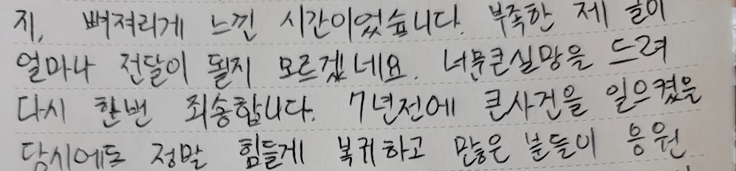 지, 뼈져리게 느낀 시간이었습니다. 부족한 제 글이
얼마나 전달이 될지 모르겠네요. 너무큰실망을 드려
다시 한번 죄송합니다. 7년전에 큰사건을 일으켰을
당시에도 정말 힘들게 복귀하고 많은 분들이 응원